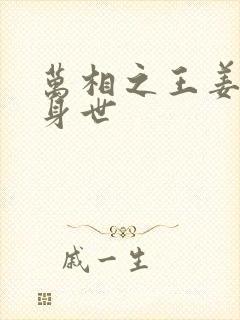 萬相之王姜
身世
戚一生